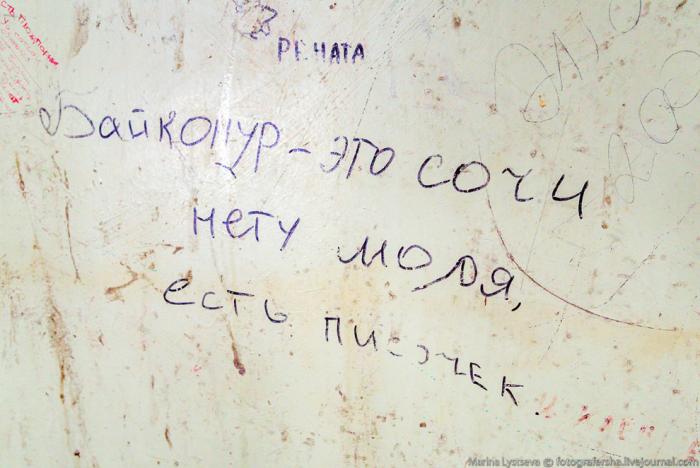 РЕНАТА
Байконур - это сочи
нету моря,
есть писочек.
Marina Lystseva @ fotografersha.livejournal.com